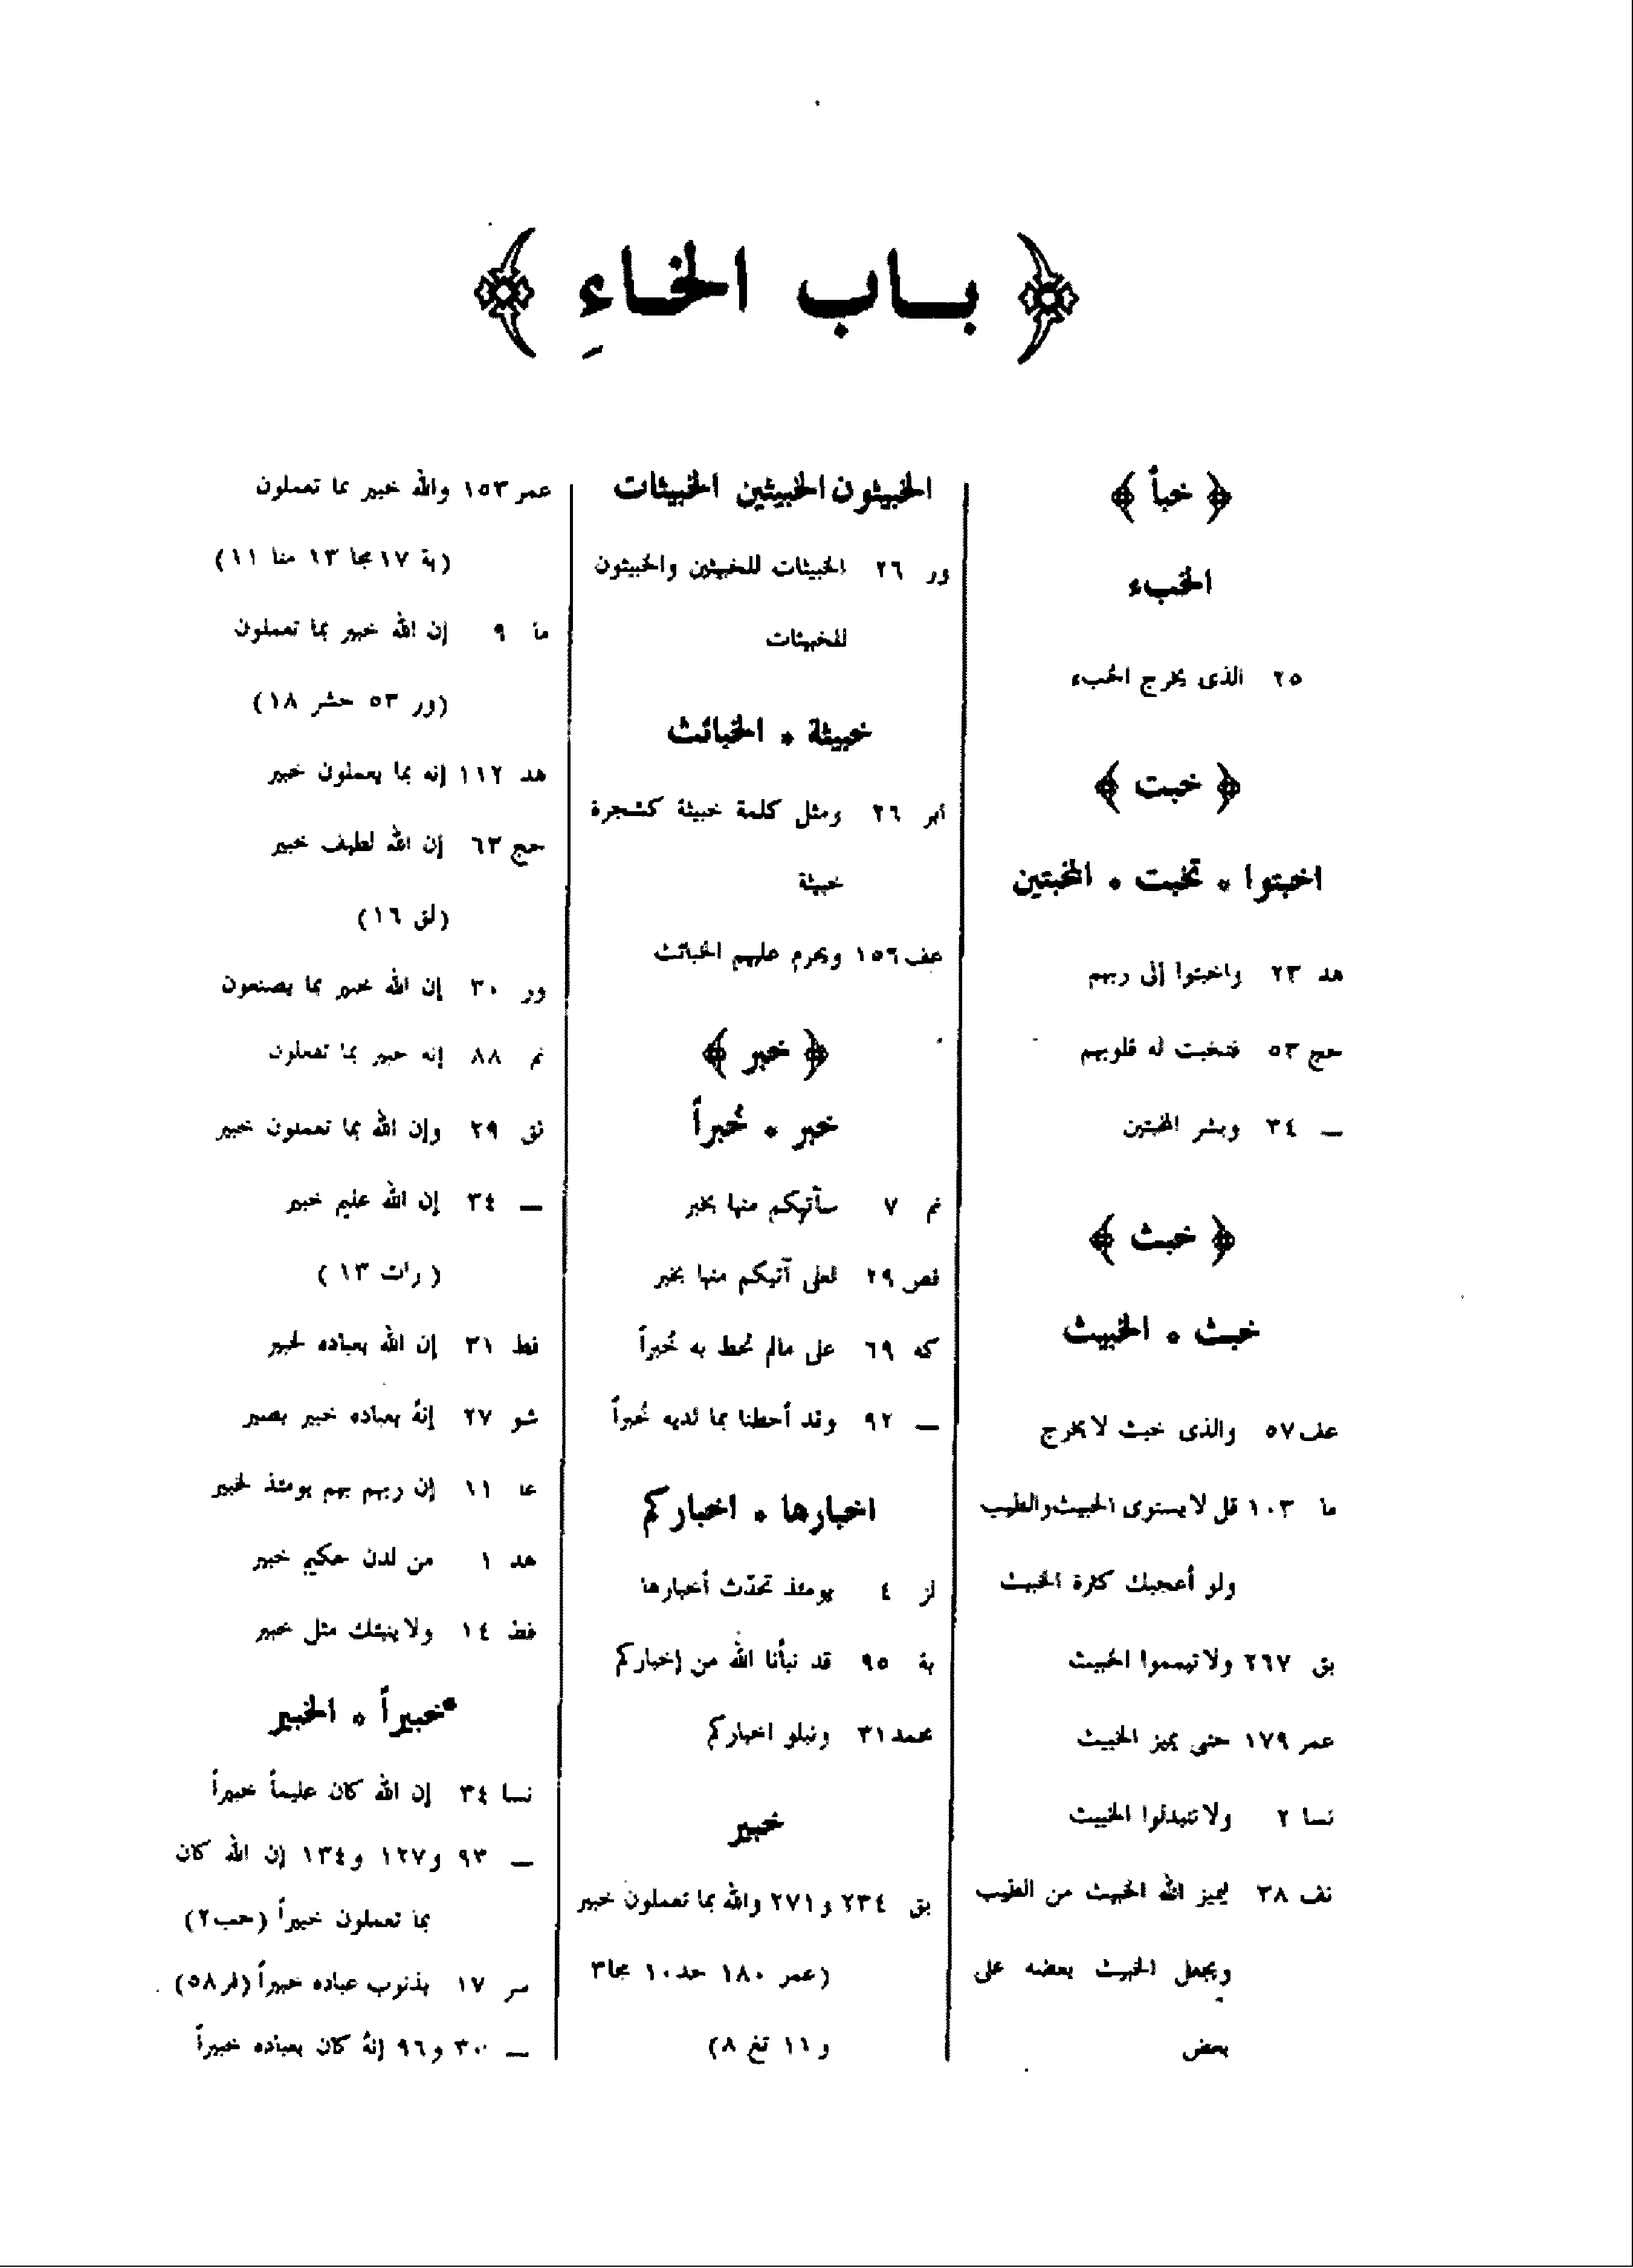 ﴿ بــاب الخــاءِ ﴾
﴿ خبأ ﴾
الخبء
٢٥ الذى يخرج الخبء
﴿ خبت ﴾
اخبتوا * تخبت * المخبتين
هد ٢٣ واخبتوا إلى ربهم
حج ٥٣ فتخبت له قلوبهم
— ٣٤ وبشر المخبتين
﴿ خبث ﴾
خبث * الخبيث
عف ٥٧ والذى خبث لا يخرج
ما ١٠٣ قل لا يستوى الخبيث والطيب
ولو أعجبك كثرة الخبيث
بق ٢٦٧ ولا تيمموا الخبيث
عمر ١٧٩ حتى يميز الخبيث
نسا ٢ ولا تتبدلوا الخبيث
نف ٣٨ ليميز الله الخبيث من الطيب
ويجعل الخبيث بعضه على
بعض
الخبيثون الخبيثين الخبيثات
ور ٢٦ الخبيثات للخبيثين والخبيثون
للخبيثات
خبيثة * الخبائث
ابر ٢٦ ومثل كلمة خبيثة كشجرة
خبيثة
عف ١٥٦ ويحرم عليهم الخبائث
﴿ خبر ﴾
خبر * خُبراً
نم ٧ سآتيكم منها بخبر
قص ٢٩ لعلى آتيكم منها بخبر
كه ٦٩ على مالم تحط به خُبراً
— ٩٢ وقد أحطنا بما لديه خُبراً
اخبارها * اخباركم
لز ٤ يومئذ تحدّث أخبارها
بة ٩٥ قد نبأنا الله من إخباركم
محمد ٣١ ونبلو اخباركم
خبير
بق ٢٣٤ و ٢٧١ والله بما تعملون خبير
(عمر ١٨٠ حد ١٠ مجا ٣
و ١١ تغ ٨)
عمر ١٥٣ والله خبير بما تعملون
(بة ١٧ مجا ١٣ منا ١١)
ما ٩ إن الله خبير بما تعملون
(ور ٥٣ حشر ١٨)
هد ١١٢ إنه بما يعملون خبير
حج ٦٣ إن الله لطيف خبير
(لق ١٦)
ور ٣٠ إن الله خبير بما يصنعون
نم ٨٨ إنه خبير بما تفعلون
لق ٢٩ وإن الله بما تعملون خبير
— ٣٤ إن الله عليم خبير
( رات ١٣ )
فط ٣١ إن الله بعباده لخبير
شو ٢٧ إنهُ بعباده خبير بصير
عا ١١ إن ربهم بهم يومئذ لخبير
هد ١ من لدن حكيم خبير
فط ١٤ ولا ينبئك مثل خبير
خبيراً * الخبير
نسا ٣٤ إن الله كان عليماً خبيراً
— ٩٣ و ١٢٧ و ١٣٤ إن الله كان
بما تعملون خبيراً (حب ٢)
سر ١٧ بذنوب عباده خبيراً (فر ٥٨)
— ٣٠ و ٩٦ إنهُ كان بعباده خبيراً